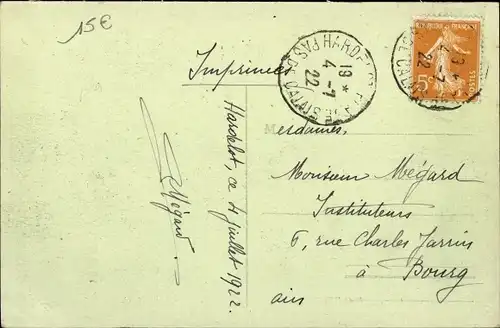 15€
Imprimés
HARDELOT-PLAGE
PAS-DE-CALAIS
19 *
4 - 7
22
5c
POSTES
Hardelot, ce 4 juillet 1922.
Mégard
Mesdames,
Monsieur Mégard
Instituteurs
6, rue Charles Jarrin
à Bourg
ain